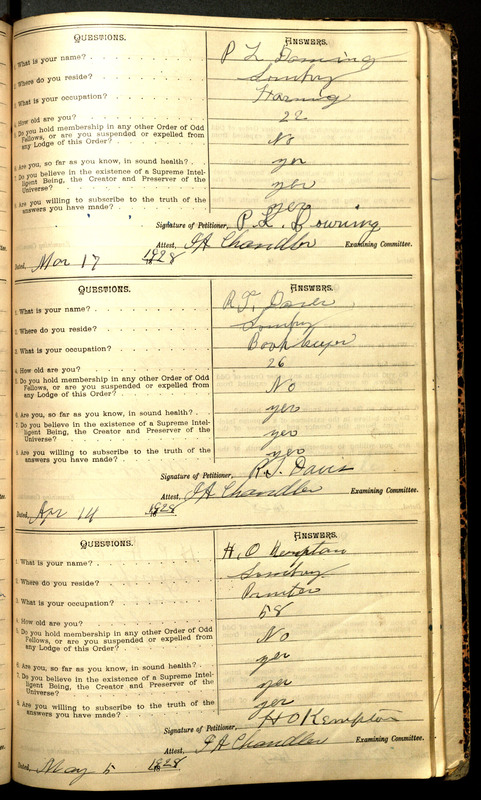 QUESTIONS. ANSWERS.
1. What is your name? P L Downing
2. Where do you reside?
3. What is your occupation? Farming
4. How old are you? 22
5. Do you hold membership in any other Order of Odd
Fellows, or are you suspended or expelled from
any Lodge of this Order? No
6. Are you, so far as you know, in sound health? yes
7. Do you believe in the existence of a Supreme Intel-
ligent Being, the Creator and Preserver of the
Universe? yes
8. Are you willing to subscribe to the truth of the
answers you have made? yes
Signature of Petitioner, P. L. Downing
Attest, J A Chandler Examining Committee.
Dated, Mar 17 1928
QUESTIONS. ANSWERS.
1. What is your name? R. J. Davis
2. Where do you reside?
3. What is your occupation? Book keeper
4. How old are you? 26
5. Do you hold membership in any other Order of Odd
Fellows, or are you suspended or expelled from
any Lodge of this Order? No
6. Are you, so far as you know, in sound health? yes
7. Do you believe in the existence of a Supreme Intel-
ligent Being, the Creator and Preserver of the
Universe? yes
8. Are you willing to subscribe to the truth of the
answers you have made? yes
Signature of Petitioner, R. J. Davis
Attest, J A Chandler Examining Committee.
Dated, Apr 14 1928
QUESTIONS. ANSWERS.
1. What is your name? H. O Kempton
2. Where do you reside?
3. What is your occupation? Painter
4. How old are you? 58
5. Do you hold membership in any other Order of Odd
Fellows, or are you suspended or expelled from
any Lodge of this Order? No
6. Are you, so far as you know, in sound health? yes
7. Do you believe in the existence of a Supreme Intel-
ligent Being, the Creator and Preserver of the
Universe? yes
8. Are you willing to subscribe to the truth of the
answers you have made? yes
Signature of Petitioner, H O Kempton
Attest, J A Chandler Examining Committee.
Dated, May 5 1928